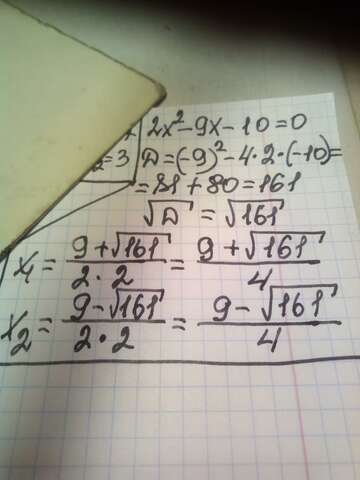 2x² - 9x - 10 = 0
₂ = 3 D = (-9)² - 4·2·(-10) =
= 81 + 80 = 161
√D = √161
x₁ = (9 + √161)/(2·2) = (9 + √161)/4
x₂ = (9 - √161)/(2·2) = (9 - √161)/4